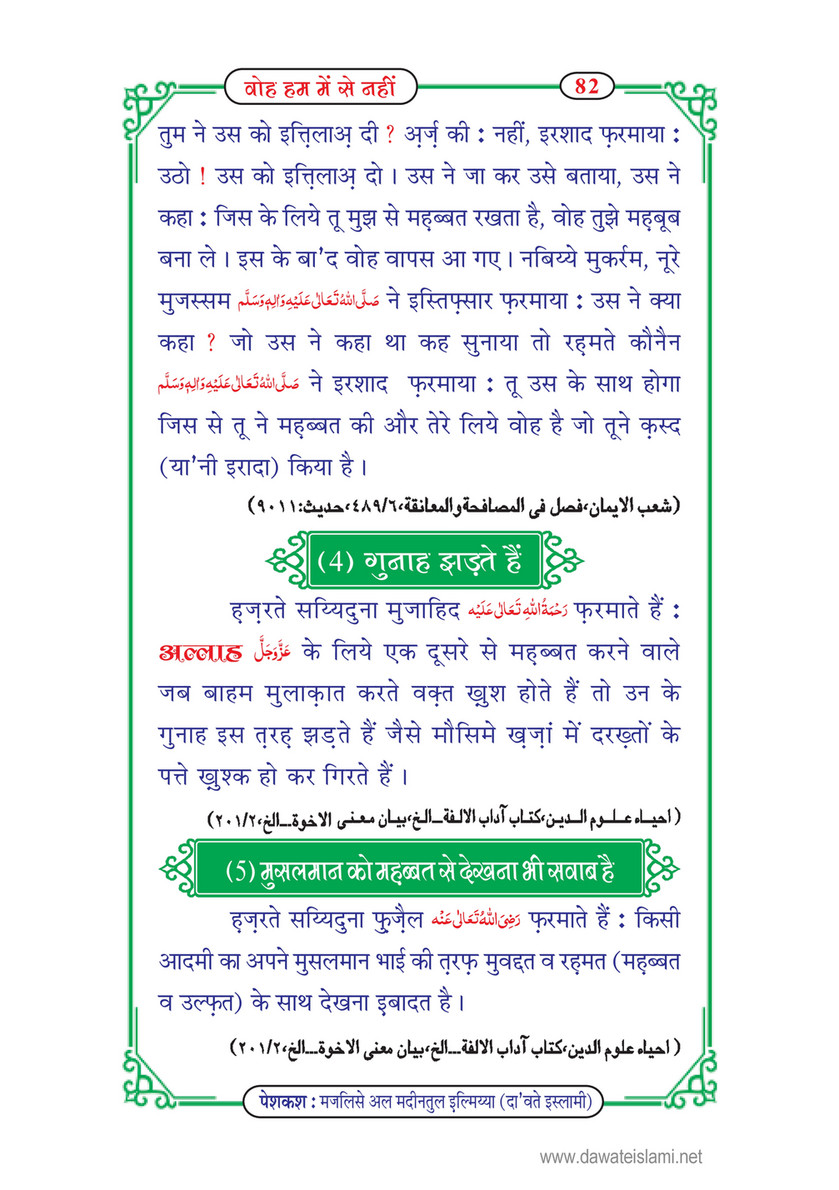 वोह हम में से नहीं
82
तुम ने उस को इत्तिलाअ़ दी ? अ़र्ज़ की : नहीं, इरशाद फ़रमाया :
उठो ! उस को इत्तिलाअ़ दो । उस ने जा कर उसे बताया, उस ने
कहा : जिस के लिये तू मुझ से मह़ब्बत रखता है, वोह तुझे मह़बूब
बना ले । इस के बा'द वोह वापस आ गए । नबिय्ये मुकर्रम, नूरे
मुजस्सम صَلَّى اللهُ تَعَالٰى عَلَيْهِ وَاٰلِهٖ وَسَلَّم ने इस्तिफ़्सार फ़रमाया : उस ने क्या
कहा ? जो उस ने कहा था कह सुनाया तो रह़मते कौनैन
صَلَّى اللهُ تَعَالٰى عَلَيْهِ وَاٰلِهٖ وَسَلَّم ने इरशाद फ़रमाया : तू उस के साथ होगा
जिस से तू ने मह़ब्बत की और तेरे लिये वोह है जो तूने क़स्द
(या'नी इरादा) किया है ।
(شعب الایمان،فصل فی المصافحة والمعانقة،۴۸۹/۶،حدیث:۹۰۱۱)
(4) गुनाह झड़ते हैं
ह़ज़रते सय्यिदुना मुजाहिद رَحْمَةُ اللهِ تَعَالٰى عَلَيْه फ़रमाते हैं :
अल्लाह عَزَّوَجَلَّ के लिये एक दूसरे से मह़ब्बत करने वाले
जब बाहम मुलाक़ात करते वक़्त ख़ुश होते हैं तो उन के
गुनाह इस त़रह़ झड़ते हैं जैसे मौसिमे ख़ज़ां में दरख़्तों के
पत्ते ख़ुश्क हो कर गिरते हैं ।
( احیاء علوم الدین،کتاب آداب الالفة...الخ،بیان معنی الاخوة...الخ،۲۰۱/۲)
(5) मुसलमान को मह़ब्बत से देखना भी सवाब है
ह़ज़रते सय्यिदुना फ़ुज़ैल رَضِيَ اللهُ تَعَالٰى عَنْه फ़रमाते हैं : किसी
आदमी का अपने मुसलमान भाई की त़रफ़ मुवद्दत व रह़मत (मह़ब्बत
व उल्फ़त) के साथ देखना इ़बादत है ।
( احیاء علوم الدین،کتاب آداب الالفة...الخ،بیان معنی الاخوة...الخ،۲۰۱/۲)
पेशकश : मजलिसे अल मदीनतुल इ़ल्मिय्या (दा'वते इस्लामी)
www.dawateislami.net